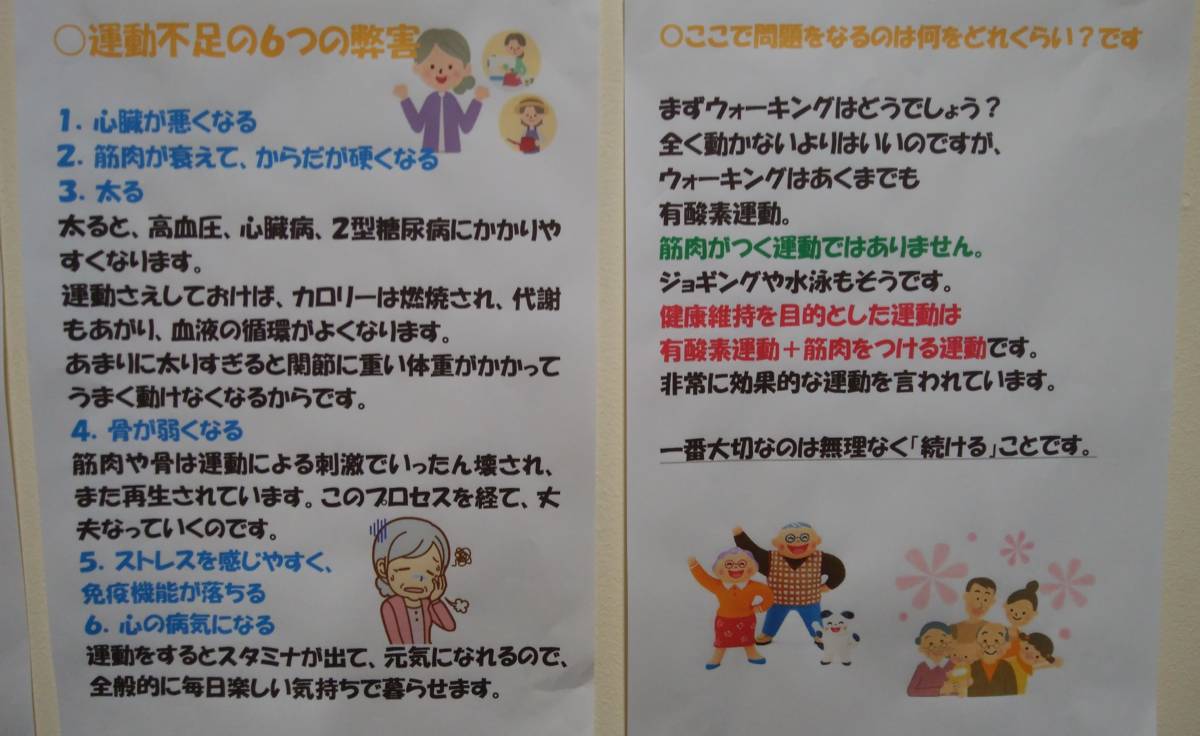 ○運動不足の6つの弊害
1. 心臓が悪くなる
2. 筋肉が衰えて、からだが硬くなる
3. 太る
太ると、高血圧、心臓病、2型糖尿病にかかりや
すくなります。
運動さえしておけば、カロリーは燃焼され、代謝
もあがり、血液の循環がよくなります。
あまりに太りすぎると関節に重い体重がかかって
うまく動けなくなるからです。
4. 骨が弱くなる
筋肉や骨は運動による刺激でいったん壊され、
また再生されています。このプロセスを経て、丈
夫なっていくのです。
5. ストレスを感じやすく、
免疫機能が落ちる
6. 心の病気になる
運動をするとスタミナが出て、元気になれるので、
全般的に毎日楽しい気持ちで暮らせます。
○ここで問題をなるのは何をどれくらい？です
まずウォーキングはどうでしょう？
全く動かないよりはいいのですが、
ウォーキングはあくまでも
有酸素運動。
筋肉がつく運動ではありません。
ジョギングや水泳もそうです。
健康維持を目的とした運動は
有酸素運動＋筋肉をつける運動です。
非常に効果的な運動を言われています。
一番大切なのは無理なく「続ける」ことです。